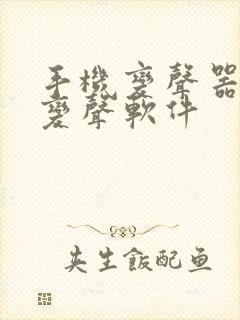 手機變聲器
變聲軟件
夹生飯配鱼